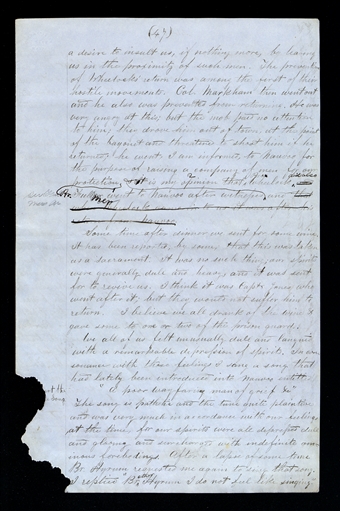 (67)
a desire to insult us, if nothing more, by leaving
us in the proximity of such men. The prevention
of Wheelock's return was among the first of their
hostile movements. Col. Markham then went out
and he also was prevented from returning. He was
very angry at this, but the mob paid no attention
to him; they drove him out of town at the point
of the bayonet and threatened to shoot him if he
returned; he went I am informed, to Nauvoo
for the purpose of raising a company of men for our
protection. It is my opinion that
went to Nauvoo
Sometime after dinner we sent for some wine.
It has been reported by some that this was taken
as a sacrament. It was no such thing; our spirits
were generally dull and heavy, and it was sent
for to revive us. I think it was Capt. Jones who
went after it, but they would not suffer him to
return. I believe we all drank of the wine &
gave some to one or two of the prison guards.
We all of us felt unusually dull and languid,
with a remarkable depression of spirits. In con-
sonance with those feelings I sang a song, that
has lately been introduced into Nauvoo entitled
"A poor wayfaring man of grief &c"
The song is pathetic and the tune quite plaintive
and was very much in accordance with our feelings
at the time, for our spirits were all depressed dull
and gloomy and surcharged with indefinite omi-
nous forebodings. After a lapse of some time
Br. Hyrum requested me again to sing that song.
I replied "Br. Hyrum I do not feel like singing"